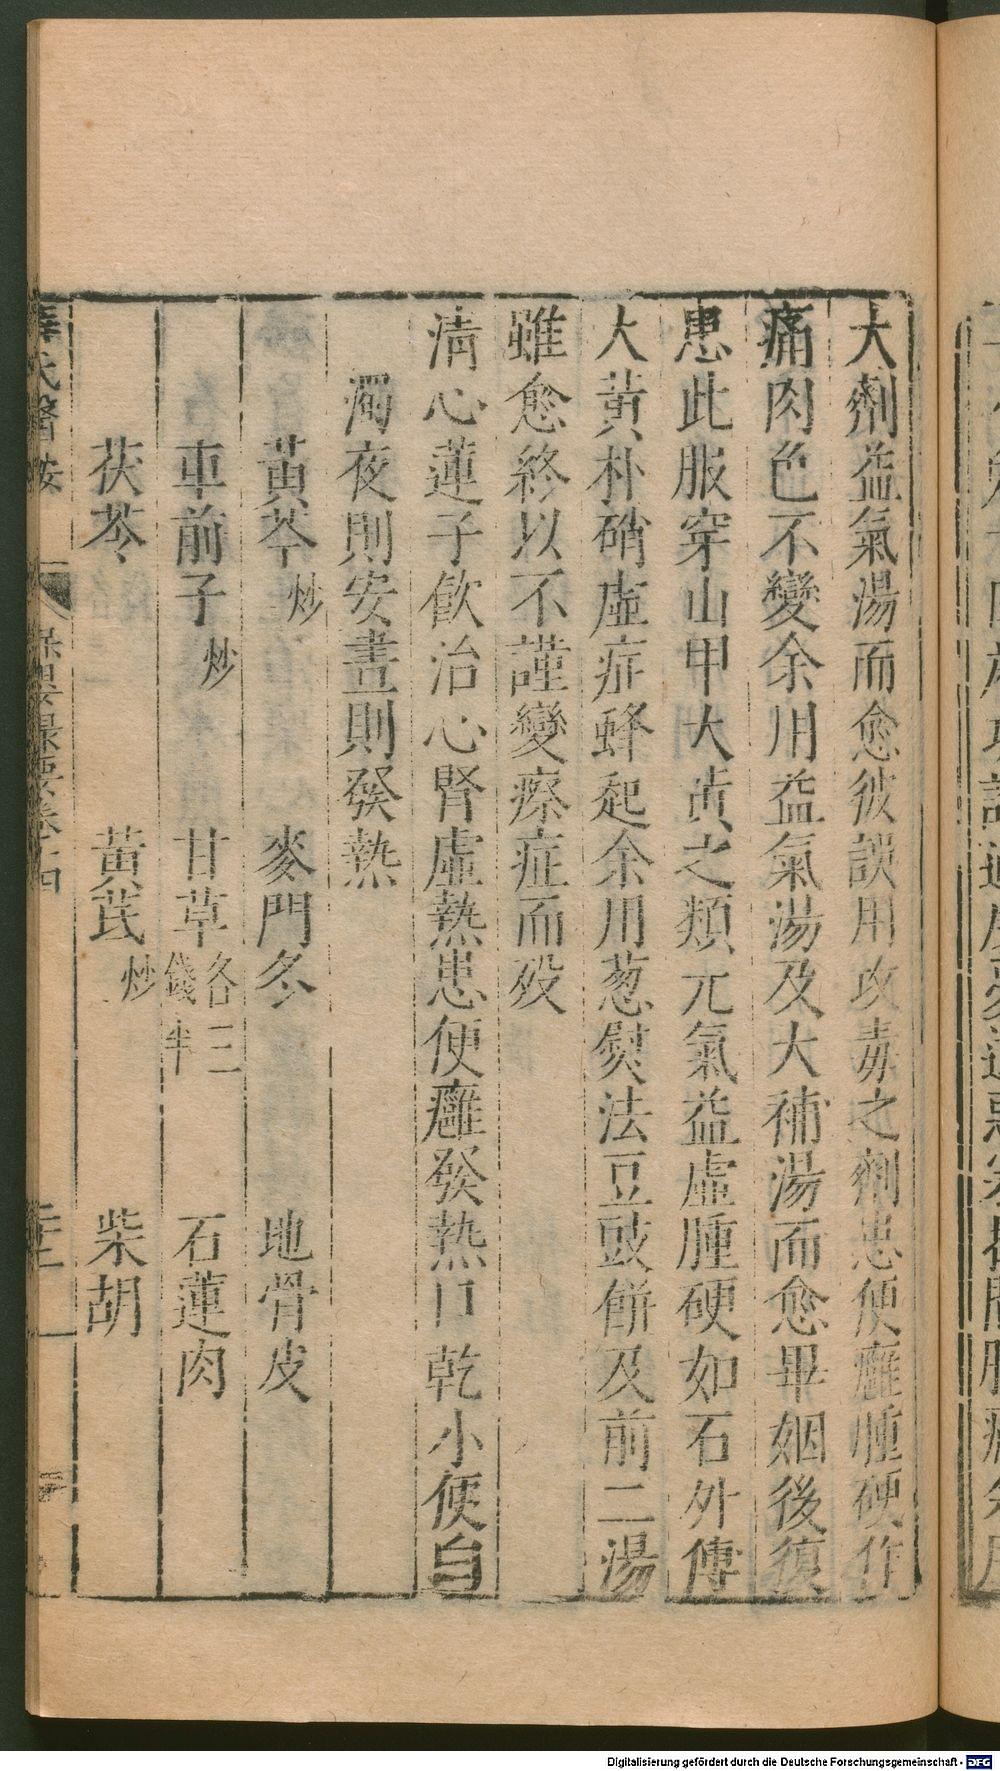 大劑益氣湯而愈彼誤用攻毒之劑患便癰腫硬作
痛肉色不變余用益氣湯及大補湯而愈畢姻後復
患此服穿山甲大黃之類元氣益虛腫硬如石外傅
大黃朴硝虛症蜂起余用葱熨法豆豉餅及前二湯
雖愈終以不謹變瘵症而歿
清心蓮子飲治心腎虛熱患便癰發熱口乾小便白
濁夜則安晝則發熱
黃芩炒 麥門冬 地骨皮
車前子炒 甘草各三錢半 石蓮肉
茯苓 黃芪炒 柴胡
薛氏醫按 保嬰撮要卷十四
Digitalisierung gefördert durch die Deutsche Forschungsgemeinschaft - DFG